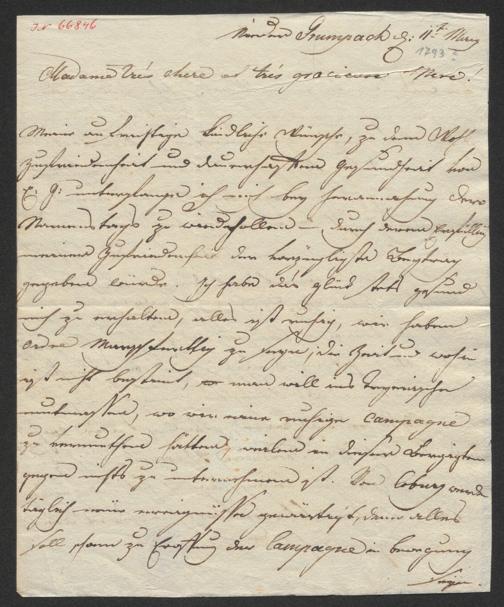 I.N. 66846
Grumpach d: 11t Merz
1793
Madame trés chere et trés gracieuse Mere!
Meine aufrichtige kindliche Wünsche, zu dem Wohl
zufriedenheit und dauerhaften Gesundheit von
E: G: unterfange ich mich bey herannahung dero
Namenstags zu wiederhollen – durch deren Erfüllung
meiner Zufriedenheit der vorzüglichste Beytrag
gegeben würde. Ich habe das glück stets gesund
mich zu erhalten, alles ist ruhig, wir haben
ordre Marschfertig zu seyn, die Zeit und wohin
ist nicht bestimt, man will ins Bayerische
muthmassen, wo wir eine ruhige Campagne
zu vermuthen hätten, weilen in diesen
gegen nichts zu unternehmen ist. Von Coburg werden
täglich neue gewärtigt, denn alles
soll schon zu Eröffnung der Campagne in bewegung
seyn.